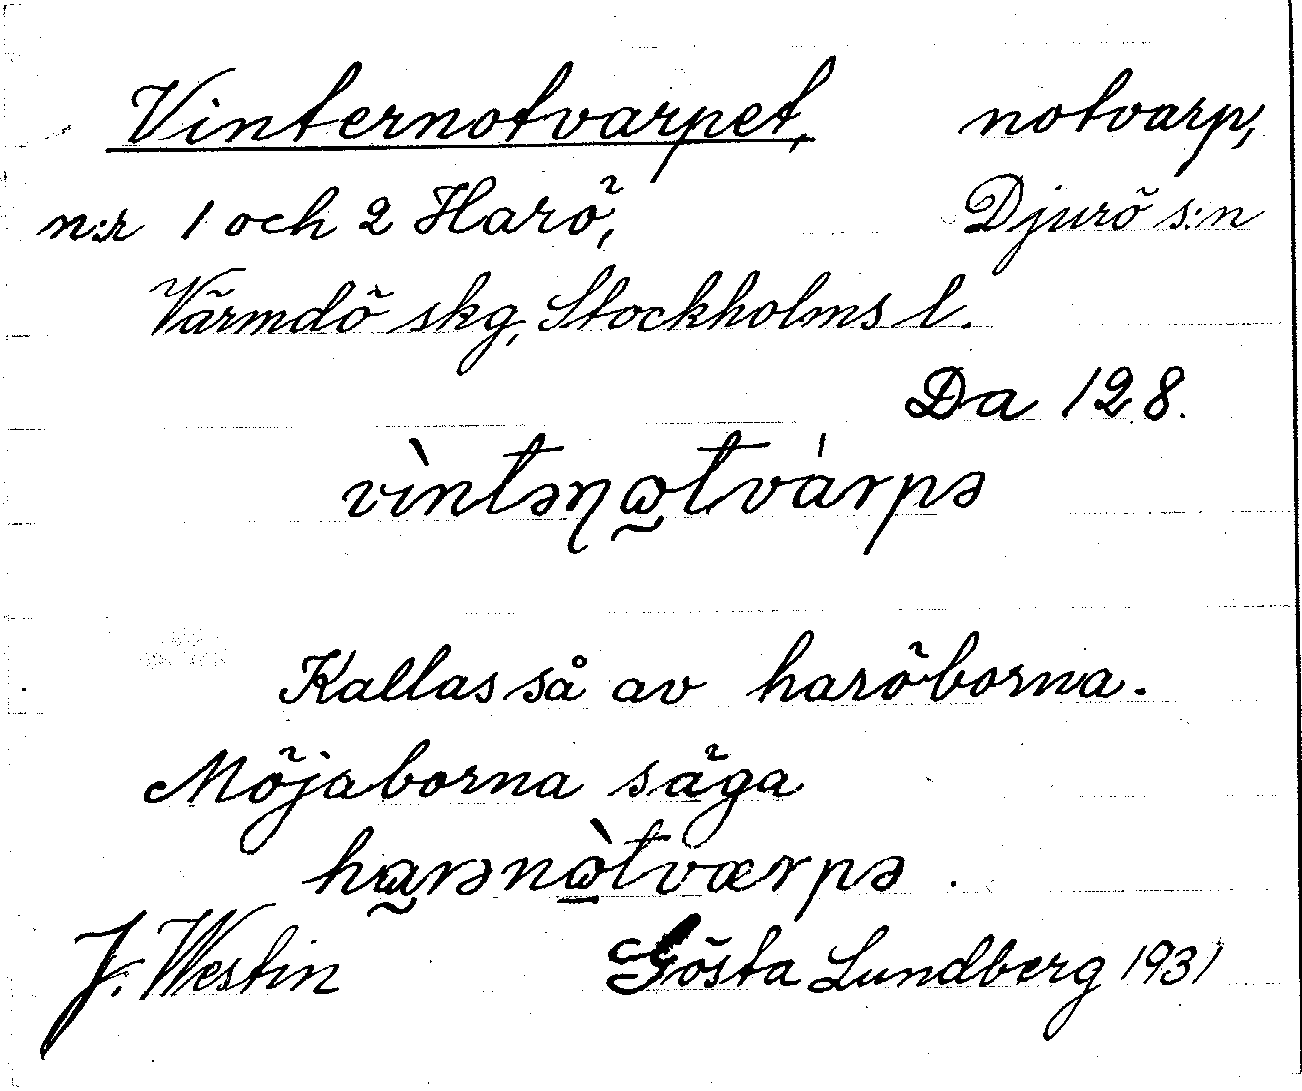 Vinternotvarpet, notvarp,
n:r 1 och 2 Harö, Djurö s:n
Värmdö skg, Stockholms l.
Da 128.
vìntəɳω̰tvárpə
Kallas så av haröborna.
Möjaborna säga
ha̰rənὼ̱tværpə.
J. Westin Gösta Lundberg 1931